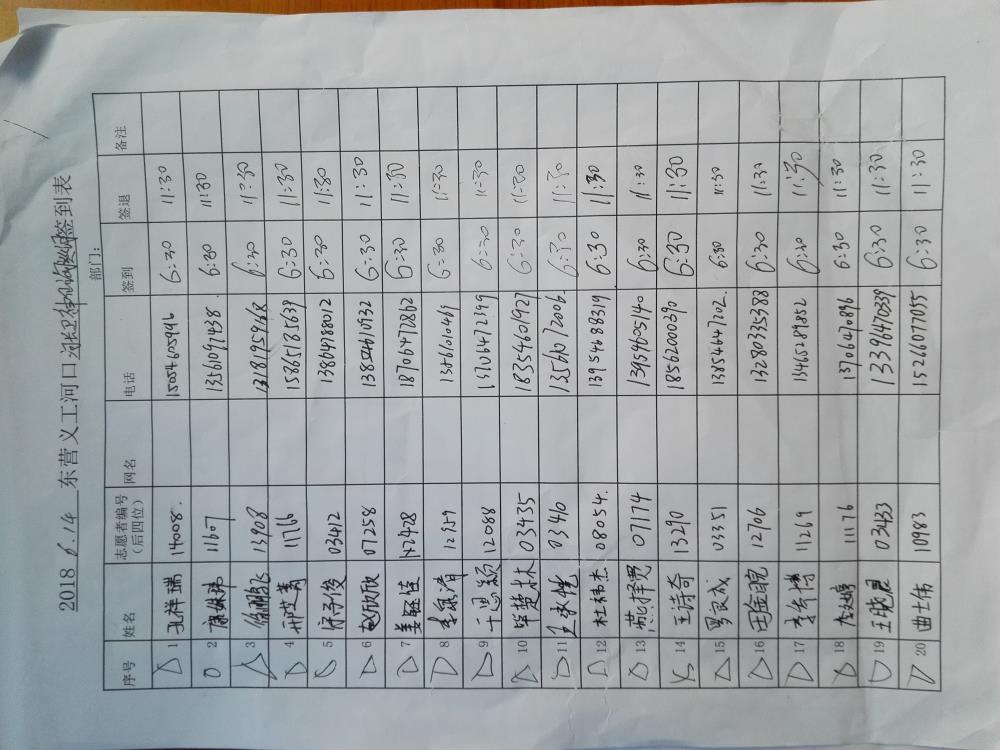 2018 6.14 东营义工河口 签到表
部门:
序号 姓名 志愿者编号(后四位) 网名 电话 签到 签退 备注
1 孔祥瑞 14008. 15054605946 6:30 11:30
2 11607 13561097438. 6:30 11:30
3 徐鹏飞 13908 6:30 11:30
4 11766 15365185639 6:30 11:30
5 宋子俊 03412 13864788012 6:30 11:30
6 赵欣欣 07258 13854610932 6:30 11:30
7 姜 12428 18706472862 6:30 11:30
8 李 12359 13561010469 6:30 11:30
9 于思颖 12088 13706472399 6:30 11:30
10 毕楚林 03435 18354601927 6:30 11:30
11 03410 13561072006. 6:30 11:30
12 杜梓杰 08054. 13954688319 6:30 11:30
13 燕泽贾 07174 13954605140 6:30 11:30
14 王诗奇 13290 18562000390 6:30 11:30
15 03351 13854647202. 6:30 11:30
16 田金 12706 13280335388 6:30 11:30
17 李 博 11269 13465289852 6:30 11:30
18 11176 13706470896 6:30 11:30
19 王 晨 03433 13396470339 6:30 11:30
20 曲士伟 10983 15266077055 6:30 11:30